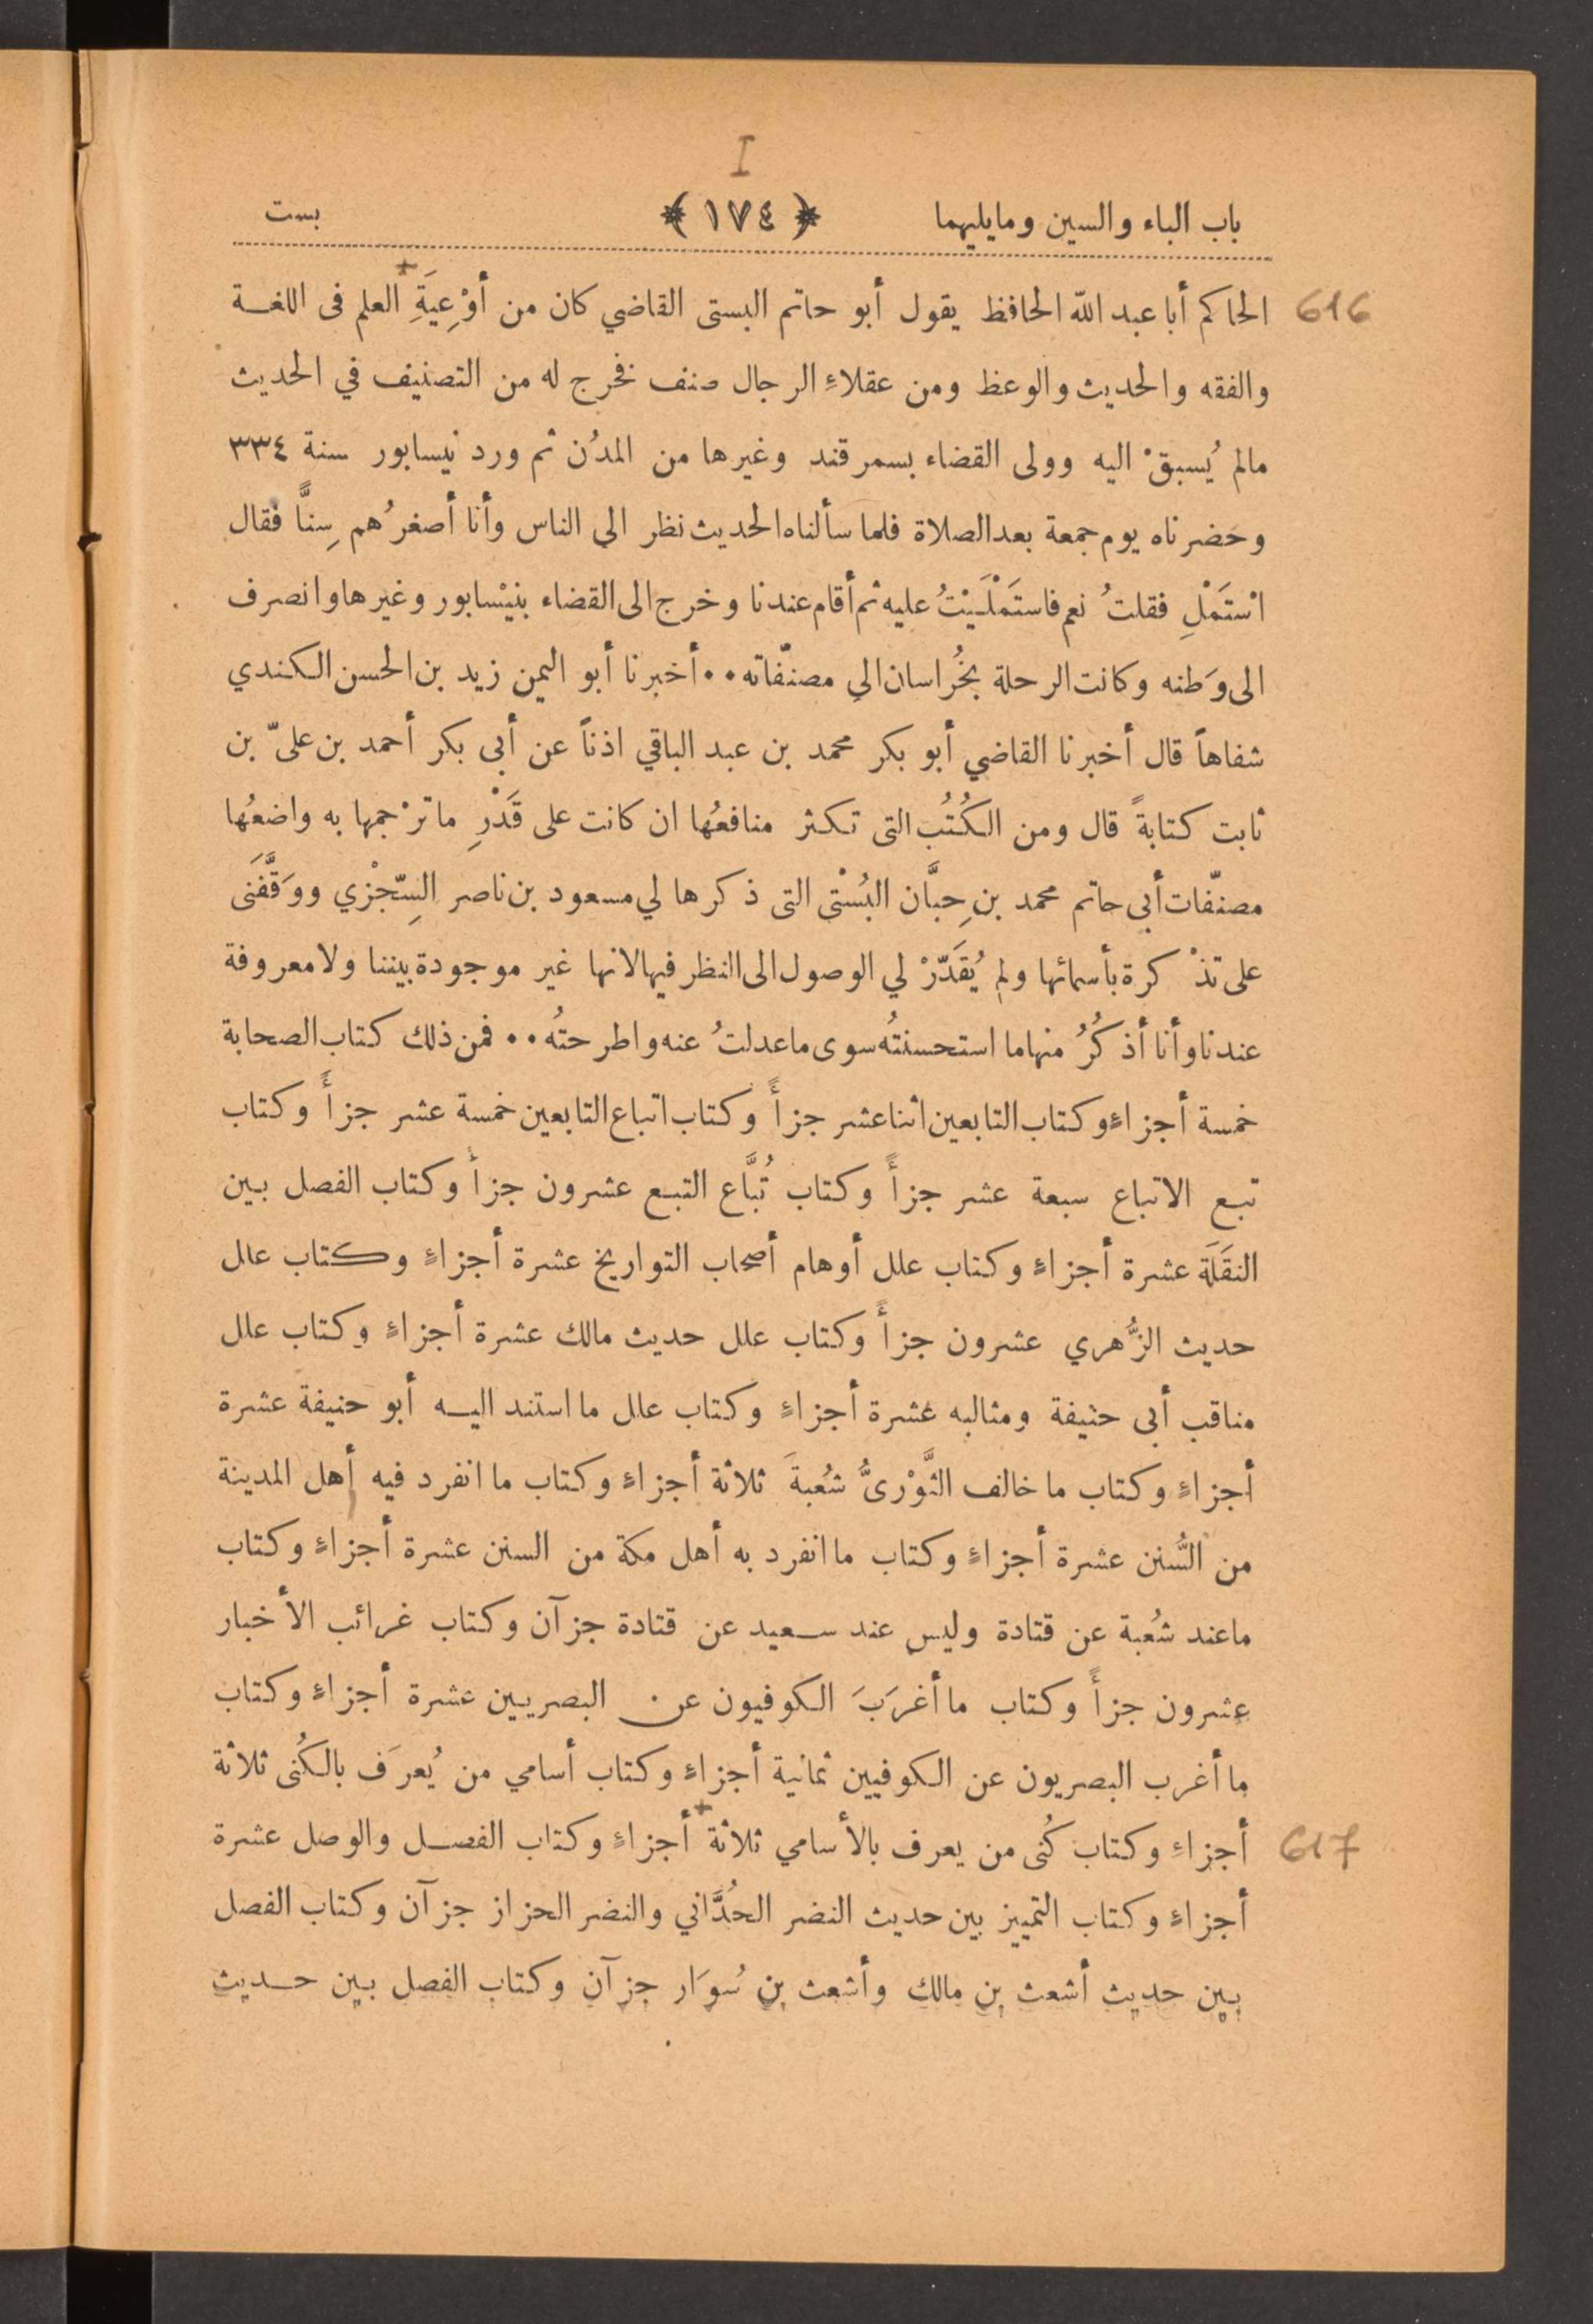 I
باب الباء والسين ومايليهما ﴿ ١٧٤ ﴾ بست
616 الحاكم أبا عبد الله الحافظ يقول أبو حاتم البستى القاضي كان من أوْعِيَةِ العلم فى اللغة
والفقه والحديث والوعظ ومن عقلاءِ الرجال صنف نخرج له من التصنيف في الحديث
مالم يُسبقْ اليه وولى القضاء بسمرقند وغيرها من المدُن ثم ورد نيسابور سنة ٣٣٤
وحَضرناه يوم جمعة بعد الصلاة فلما سألناه الحديث نظر الى الناس وأنا أصغرُهم سِنًّا فقال
اسْتَمْلِ فقلتُ نعم فاستَمْلَيْتُ عليه ثم أقام عندنا وخرج الى القضاء بنيْسابور وغيرها وانصرف
الى وَطنه وكانت الرحلة بخُراسان الى مصنّفاته ٠٠ أخبرنا أبو اليمن زيد بن الحسن الكندي
شفاهاً قال أخبرنا القاضي أبو بكر محمد بن عبد الباقي اذناً عن أبى بكر أحمد بن علىّ بن
ثابت كتابةً قال ومن الكُتُب التى تكثر منافعُها ان كانت على قَدْرِ ماترْجمها به واضعُها
مصنّفات أبى حاتم محمد بن حِبَّان البُسْتى التى ذكرها لي مسعود بن ناصر السِّجْزي ووَقَّفَنى
على تذْكرة بأسمائها ولم يُقَدّرْ لي الوصول الى النظر فيها لانها غير موجودة بيننا ولا معروفة
عندنا وأنا أذكُرُ منها ما استحسنتُه سوى ماعدلتُ عنه واطرحتُه ٠٠ فمن ذلك كتاب الصحابة
خمسة أجزاءٍ وكتاب التابعين اثنا عشر جزأً وكتاب اتباع التابعين خمسة عشر جزأً وكتاب
تبع الاتباع سبعة عشر جزأً وكتاب تُبَّاع التبع عشرون جزأ وكتاب الفصل بين
النقَلَة عشرة أجزاءٍ وكتاب علل أوهام أصحاب التواريخ عشرة أجزاءٍ وكتاب علل
حديث الزُّهري عشرون جزأً وكتاب علل حديث مالك عشرة أجزاءٍ وكتاب علل
مناقب أبى حنيفة ومثالبه عشرة أجزاءٍ وكتاب علل ما استند اليه أبو حنيفة عشرة
أجزاءٍ وكتاب ما خالف الثَّوْرىُّ شُعبةَ ثلاثة أجزاءٍ وكتاب ما انفرد فيه أهل المدينة
من السُّنن عشرة أجزاءٍ وكتاب ما انفرد به أهل مكة من السنن عشرة أجزاءٍ وكتاب
ماعند شُعبة عن قتادة وليس عند سعيد عن قتادة جزآن وكتاب غرائب الأخبار
عشرون جزأً وكتاب ما أغرَبَ الكوفيون عن البصريين عشرة أجزاءٍ وكتاب
ما أغرب البصريون عن الكوفيين ثمانية أجزاءٍ وكتاب أسامي من يُعرَف بالكُنى ثلاثة
617 أجزاءٍ وكتاب كُنى من يعرف بالأسامي ثلاثة أجزاءٍ وكتاب الفصل والوصل عشرة
أجزاءٍ وكتاب التمييز بين حديث النضر الحُدَّاني والنضر الحزاز جزآن وكتاب الفصل
بين حديث أشعث بن مالك وأشعث بن سُوَار جزآن وكتاب الفصل بين حديث